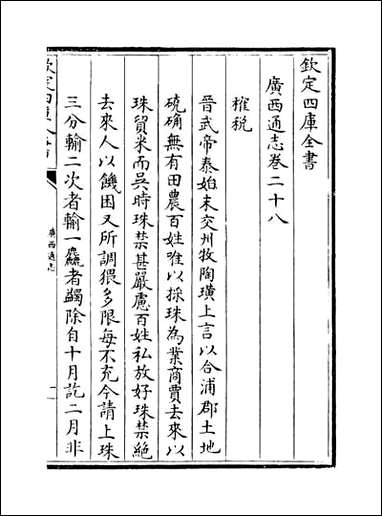 欽定四庫全書
廣西通志卷二十八
榷税
晉武帝泰始末交州牧陶璜上言以合浦郡土地
磽确無有田農百姓唯以採珠為業商賈去來以
珠貿米而吳時珠禁甚嚴慮百姓私放好珠禁絶
去來人以饑困又所調猥多限每不充今請上珠
三分輸二次者輸一麤者蠲除自十月訖二月非
廣西通志
一